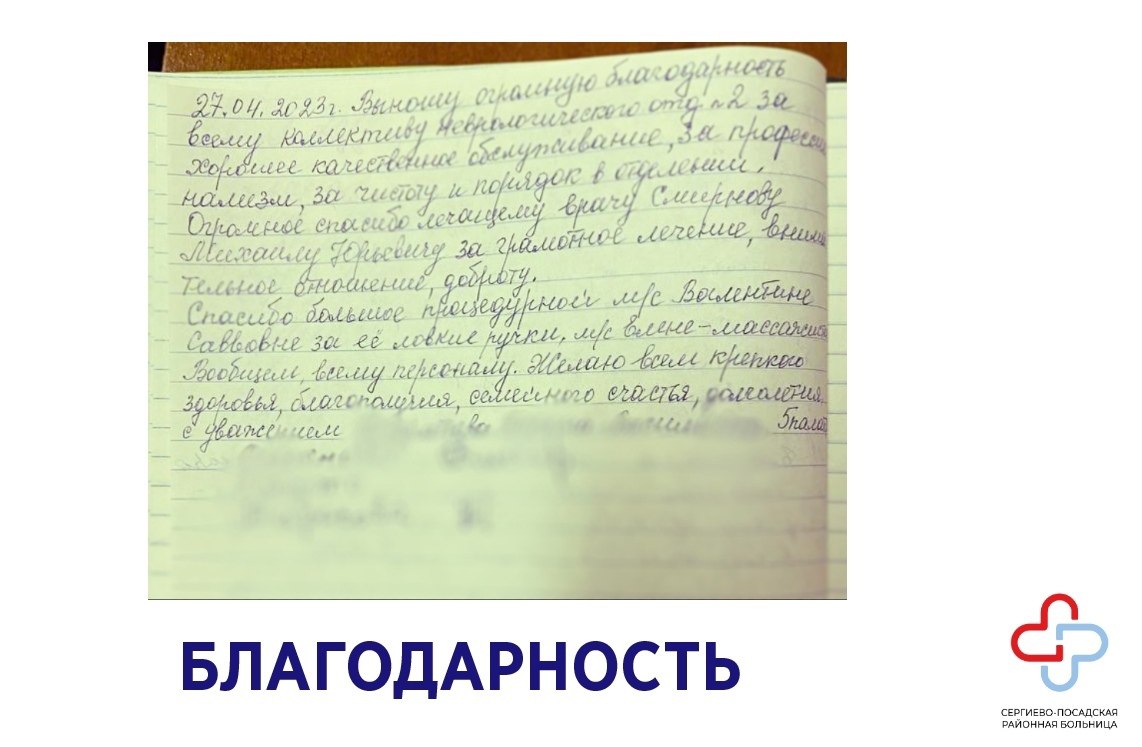 27.04.2023г. Выношу огромную благодарность
всему коллективу неврологического отд. №2 за
хорошее качественное обслуживание, за професси
нализм, за чистоту и порядок в отделении.
Огромное спасибо лечащему врачу Смирнову
Михаилу Юрьевичу за грамотное лечение, внима
тельное отношение, доброту.
Спасибо большое процедурной м/с Валентине
Саввовне за её ловкие ручки, м/с Елене-массажист
Вообщем, всему персоналу. Желаю всем крепкого
здоровья, благополучия, семейного счастья, долголетия.
с уважением 5палат
БЛАГОДАРНОСТЬ
СЕРГИЕВО-ПОСАДСКАЯ
РАЙОННАЯ БОЛЬНИЦА